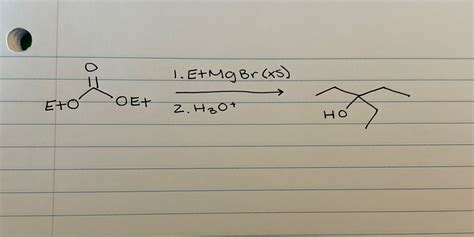 O
1. EtMgBr (xS)
EtO OEt
2. H3O+
HO